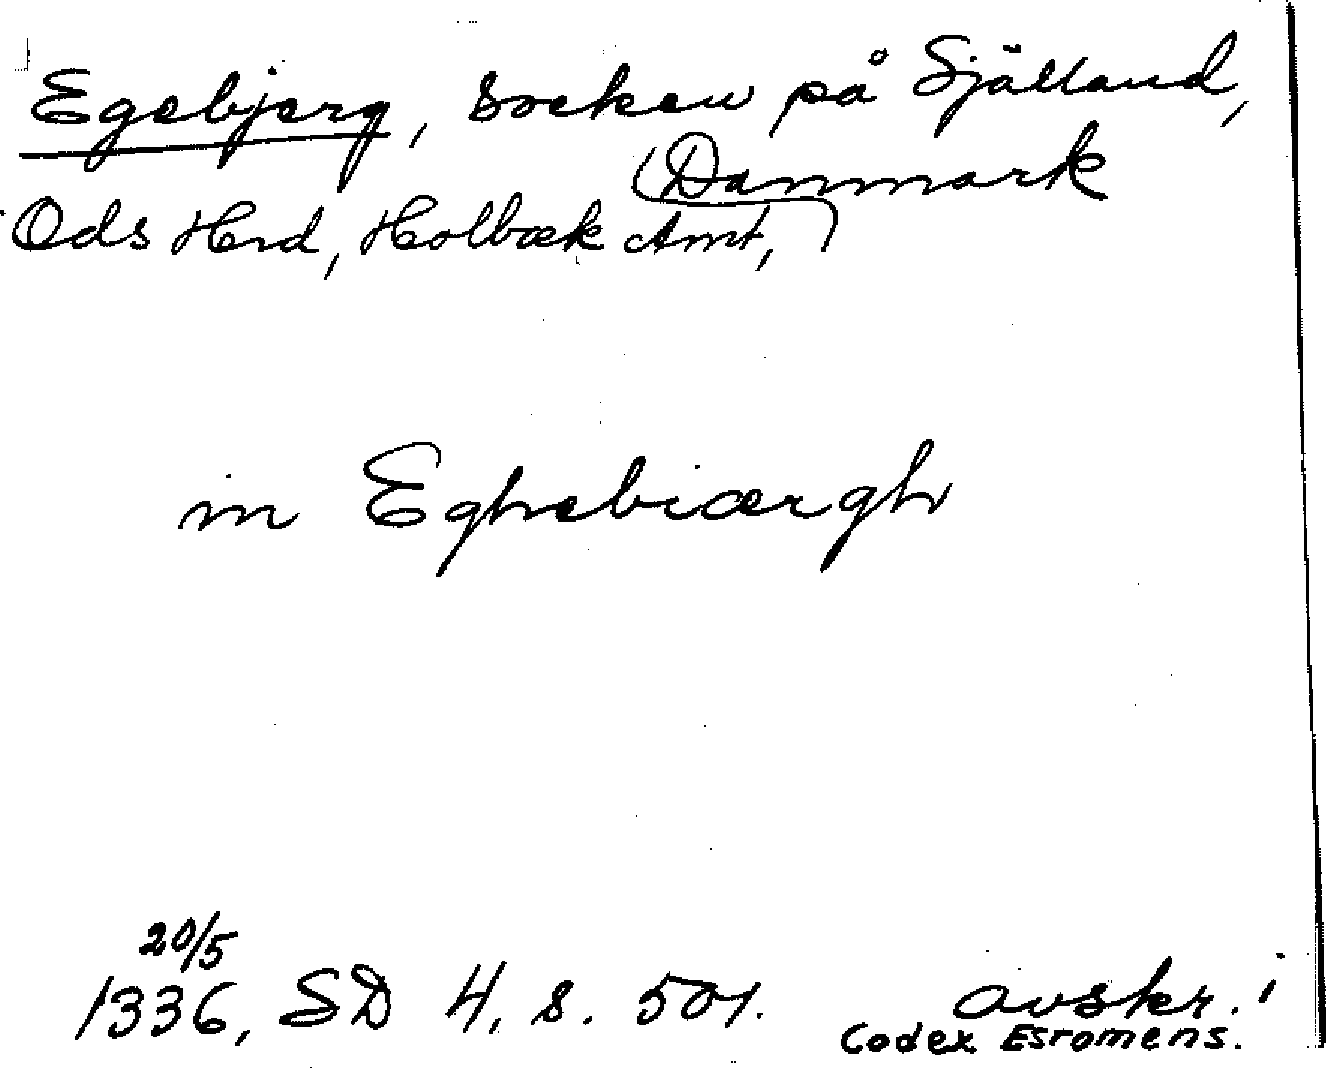 Egebjerg, socken på Själland,
Danmark
Ods Hrd, Holbæk Amt,
in Eghebiærgh
20/5
1336, SD 4, s. 501. avskr. i
Codex Esromens.